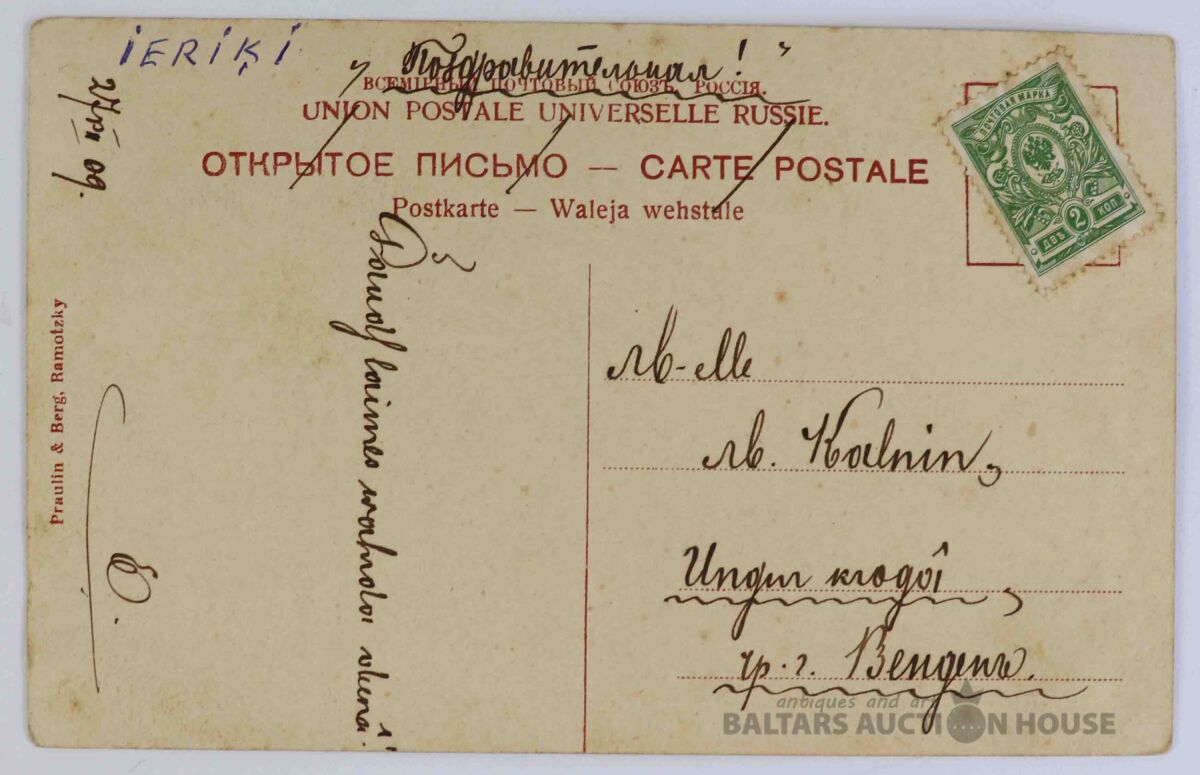 IERIĶI
„Поздравительная!“
ВСЕМІРНЫЙ ПОЧТОВЫЙ СОЮЗЪ. РОССІЯ.
UNION POSTALE UNIVERSELLE RUSSIE.
ОТКРЫТОЕ ПИСЬМО — CARTE POSTALE
Postkarte — Waleja wehstule
ПОЧТОВАЯ МАРКА
ДВѢ 2 КОП
09.
Daudſ laimes wahrda deenā!
E.
Praulin & Berg, Ramotzky
M-elle
M. Kalnin,
Ungur krogâ,
чр. г. Венденъ.
antiques and art
BALTARS AUCTION HOUSE